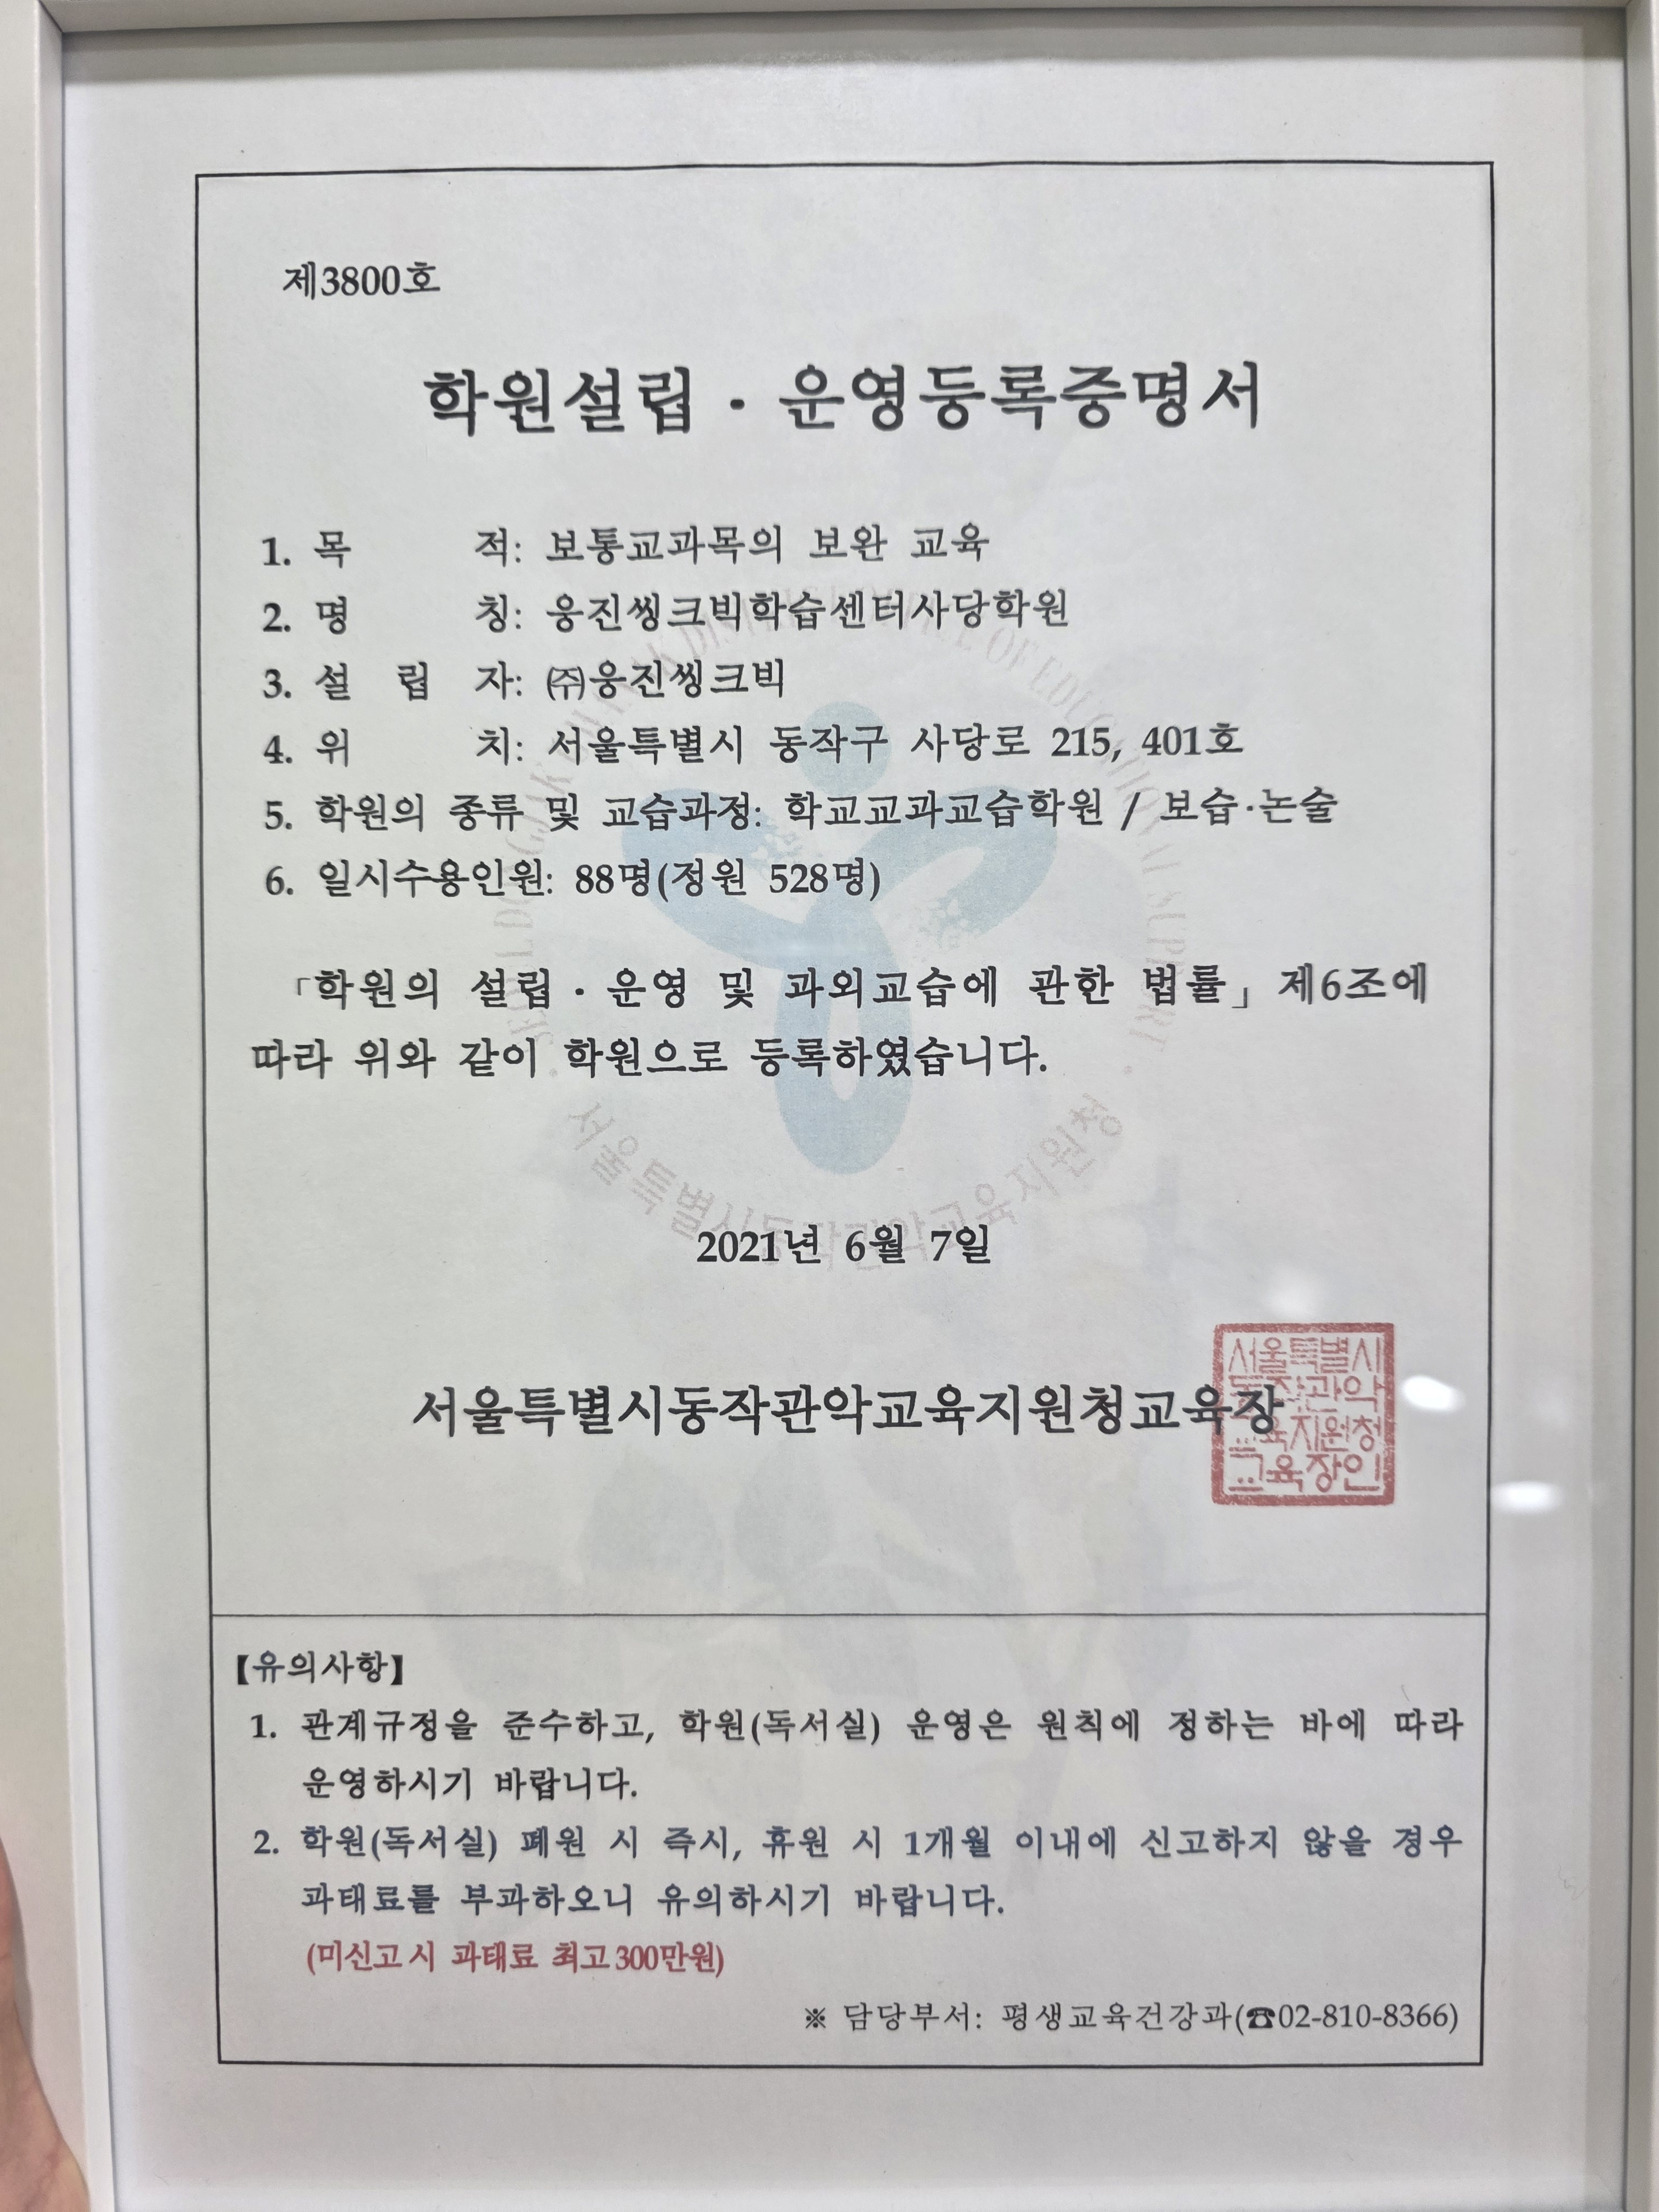 제3800호
학원설립 · 운영등록증명서
1. 목 적: 보통교과목의 보완 교육
2. 명 칭: 웅진씽크빅학습센터사당학원
3. 설 립 자: ㈜웅진씽크빅
4. 위 치: 서울특별시 동작구 사당로 215, 401호
5. 학원의 종류 및 교습과정: 학교교과교습학원 / 보습·논술
6. 일시수용인원: 88명(정원 528명)
「학원의 설립 · 운영 및 과외교습에 관한 법률」 제6조에
따라 위와 같이 학원으로 등록하였습니다.
서울특별시동작관악교육지원청
2021년 6월 7일
서울특별시동작관악교육지원청교육장
서울특별시
동작관악
교육지원청
교육장인
【유의사항】
1. 관계규정을 준수하고, 학원(독서실) 운영은 원칙에 정하는 바에 따라
운영하시기 바랍니다.
2. 학원(독서실) 폐원 시 즉시, 휴원 시 1개월 이내에 신고하지 않을 경우
과태료를 부과하오니 유의하시기 바랍니다.
(미신고 시 과태료 최고 300만원)
※ 담당부서: 평생교육건강과(☎02-810-8366)